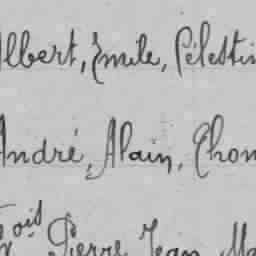 Albert, Emile, Célestin
André, Alain, Thom
Pierre Jean Ma